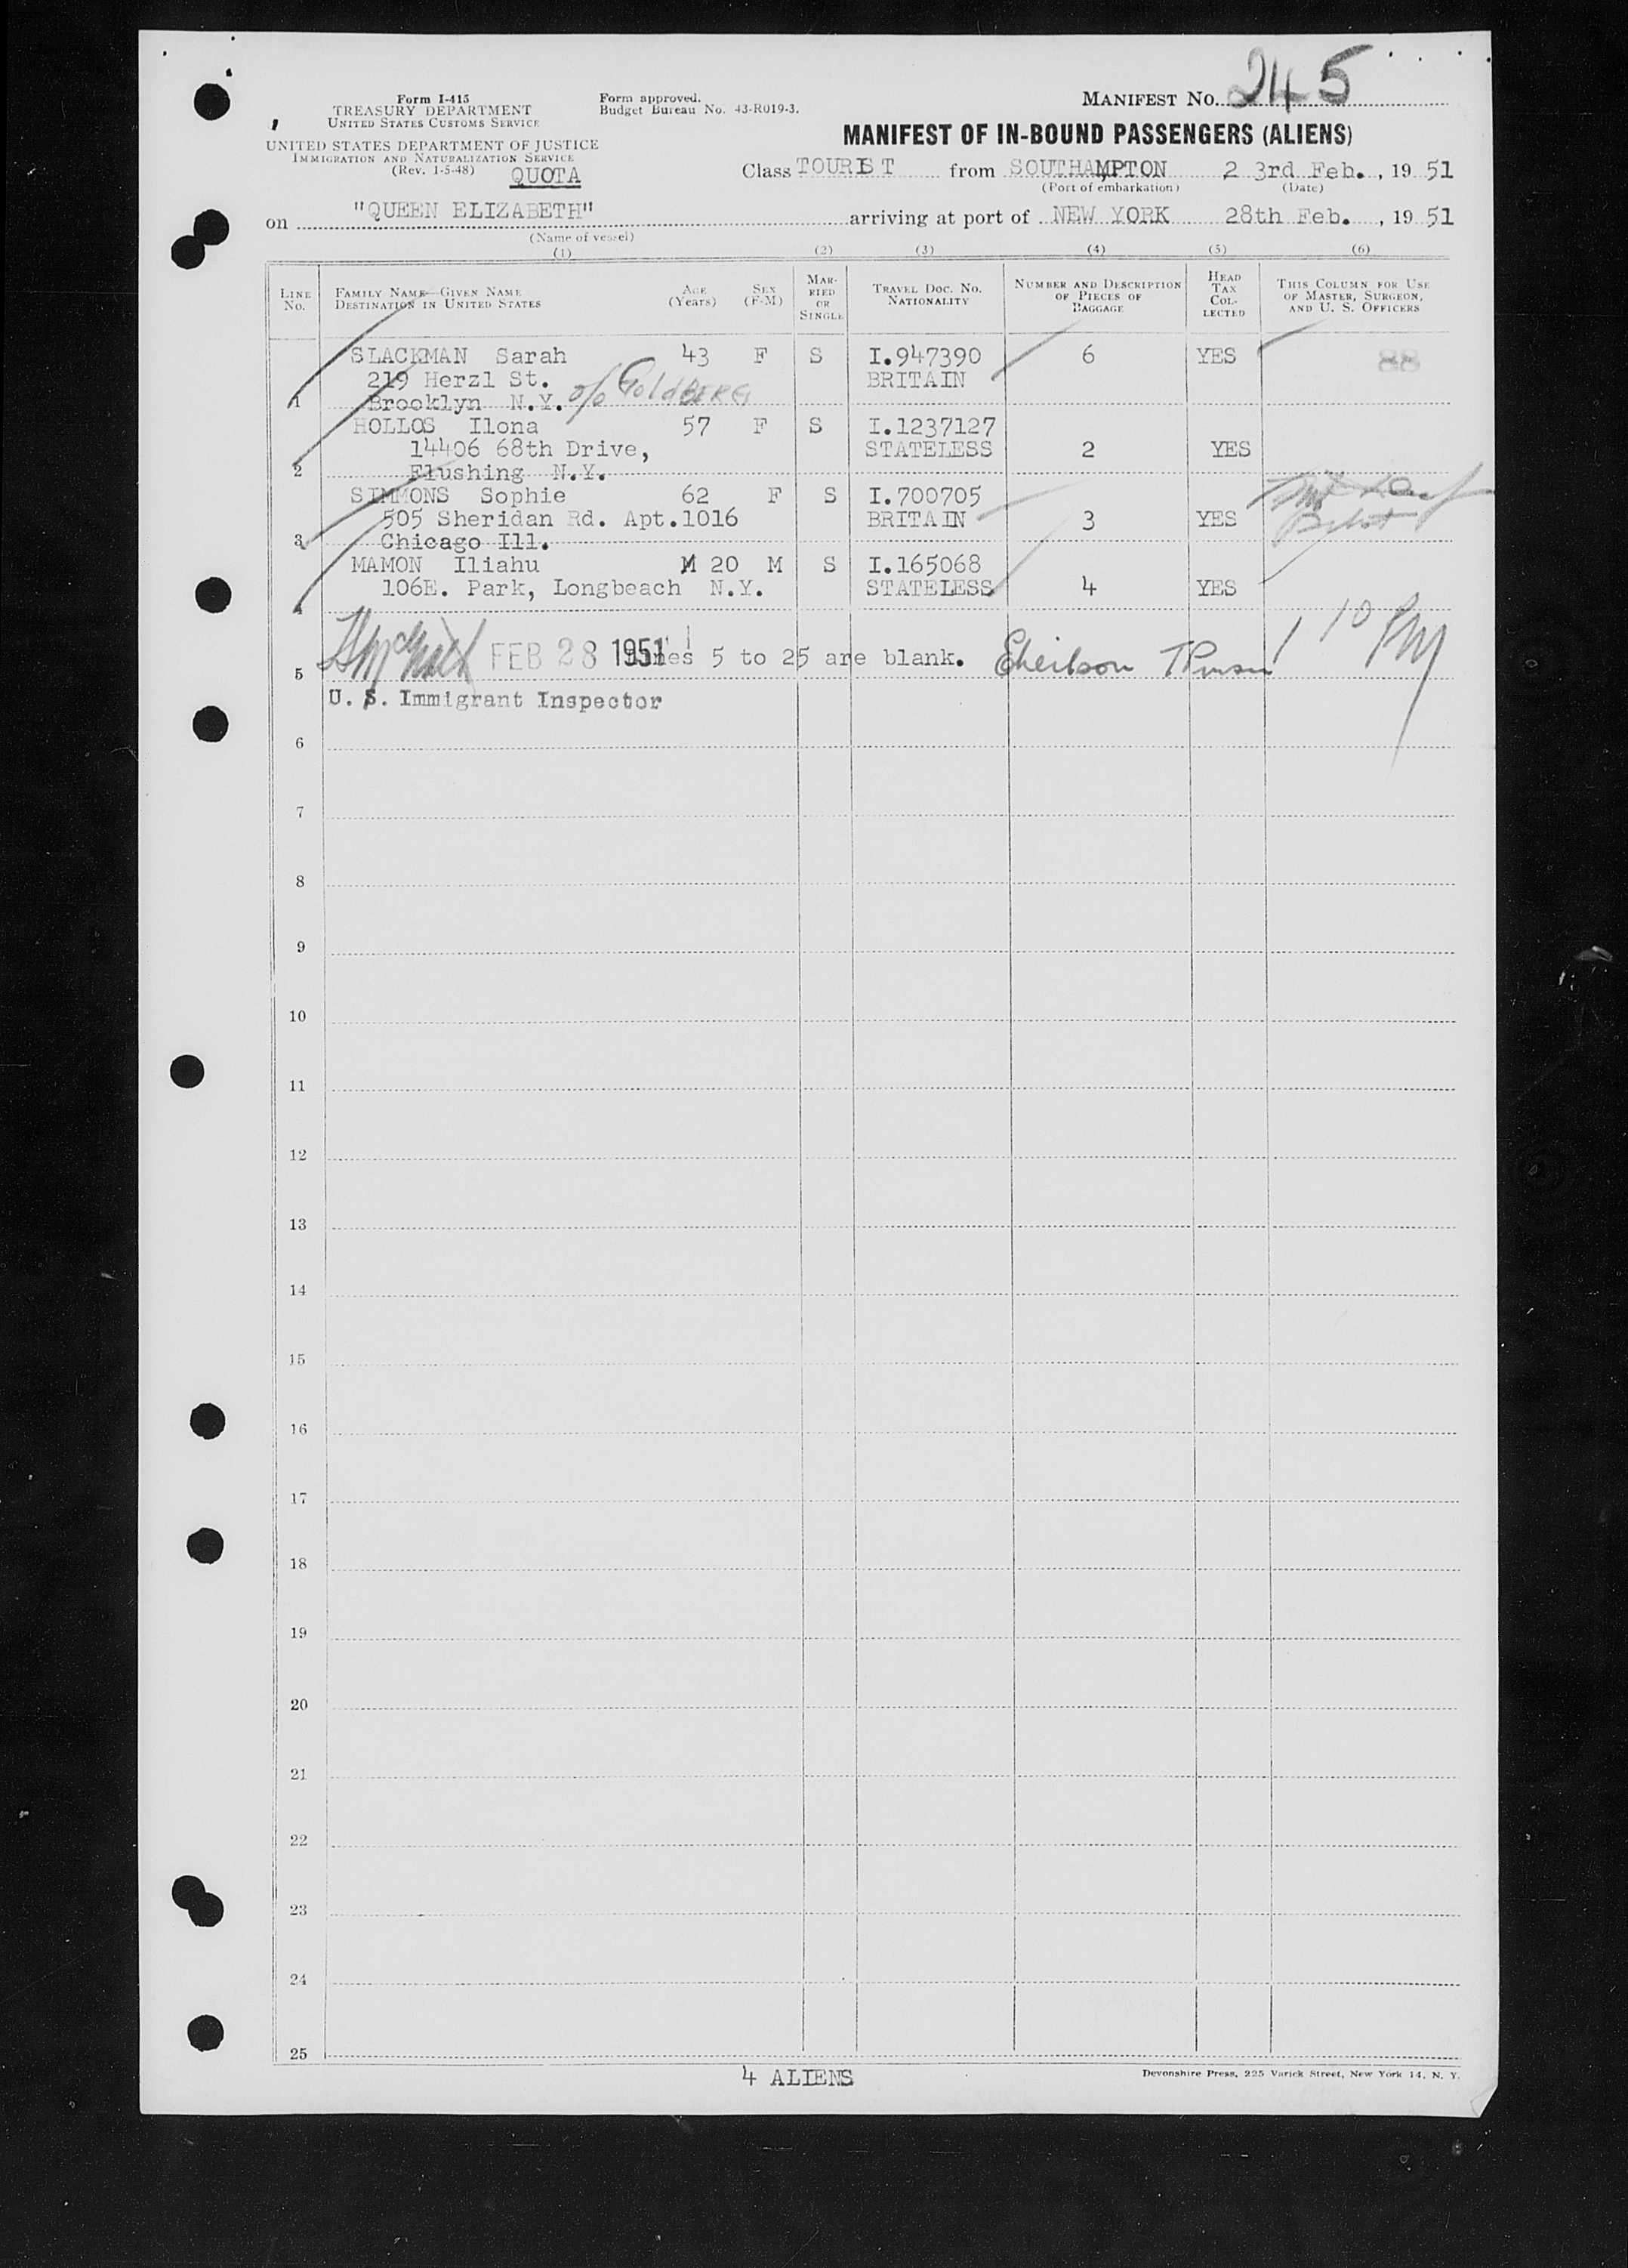 MANIFEST NO. 245
Form I-415
TREASURY DEPARTMENT
UNITED STATES CUSTOMS SERVICE
UNITED STATES DEPARTMENT OF JUSTICE
IMMIGRATION AND NATURALIZATION SERVICE
(Rev. 1-5-48) QUOTA
Form approved.
Budget Bureau No. 43-R019-3.
MANIFEST OF IN-BOUND PASSENGERS (ALIENS)
Class TOURIST from SOUTHAMPTON 23rd Feb., 1951
(Port of embarkation) (Date)
on "QUEEN ELIZABETH" arriving at port of NEW YORK 28th Feb., 1951
(Name of vessel)
(1) (2) (3) (4) (5) (6)
LINE NO. FAMILY NAME—GIVEN NAME DESTINATION IN UNITED STATES AGE (Years) SEX (F-M) MARRIED OR SINGLE TRAVEL DOC. NO. NATIONALITY NUMBER AND DESCRIPTION OF PIECES OF BAGGAGE HEAD TAX COLLECTED THIS COLUMN FOR USE OF MASTER, SURGEON, AND U. S. OFFICERS
SLACKMAN Sarah 43 F S I.947390 6 YES 88
219 Herzl St. BRITAIN
1 Brooklyn N.Y. c/o GoldBERG
HOLLOS Ilona 57 F S I.1237127
14406 68th Drive, STATELESS 2 YES
2 Flushing N.Y.
SIMMONS Sophie 62 F S I.700705
505 Sheridan Rd. Apt.1016 BRITAIN 3 YES
3 Chicago Ill.
MAMON Iliahu M 20 M S I.165068
106E. Park, Longbeach N.Y. STATELESS 4 YES
4
5 FEB 28 1951 Lines 5 to 25 are blank. 1 10 PM
U. S. Immigrant Inspector
6
7
8
9
10
11
12
13
14
15
16
17
18
19
20
21
22
23
24
25
4 ALIENS
Devonshire Press, 225 Varick Street, New York 14, N. Y.